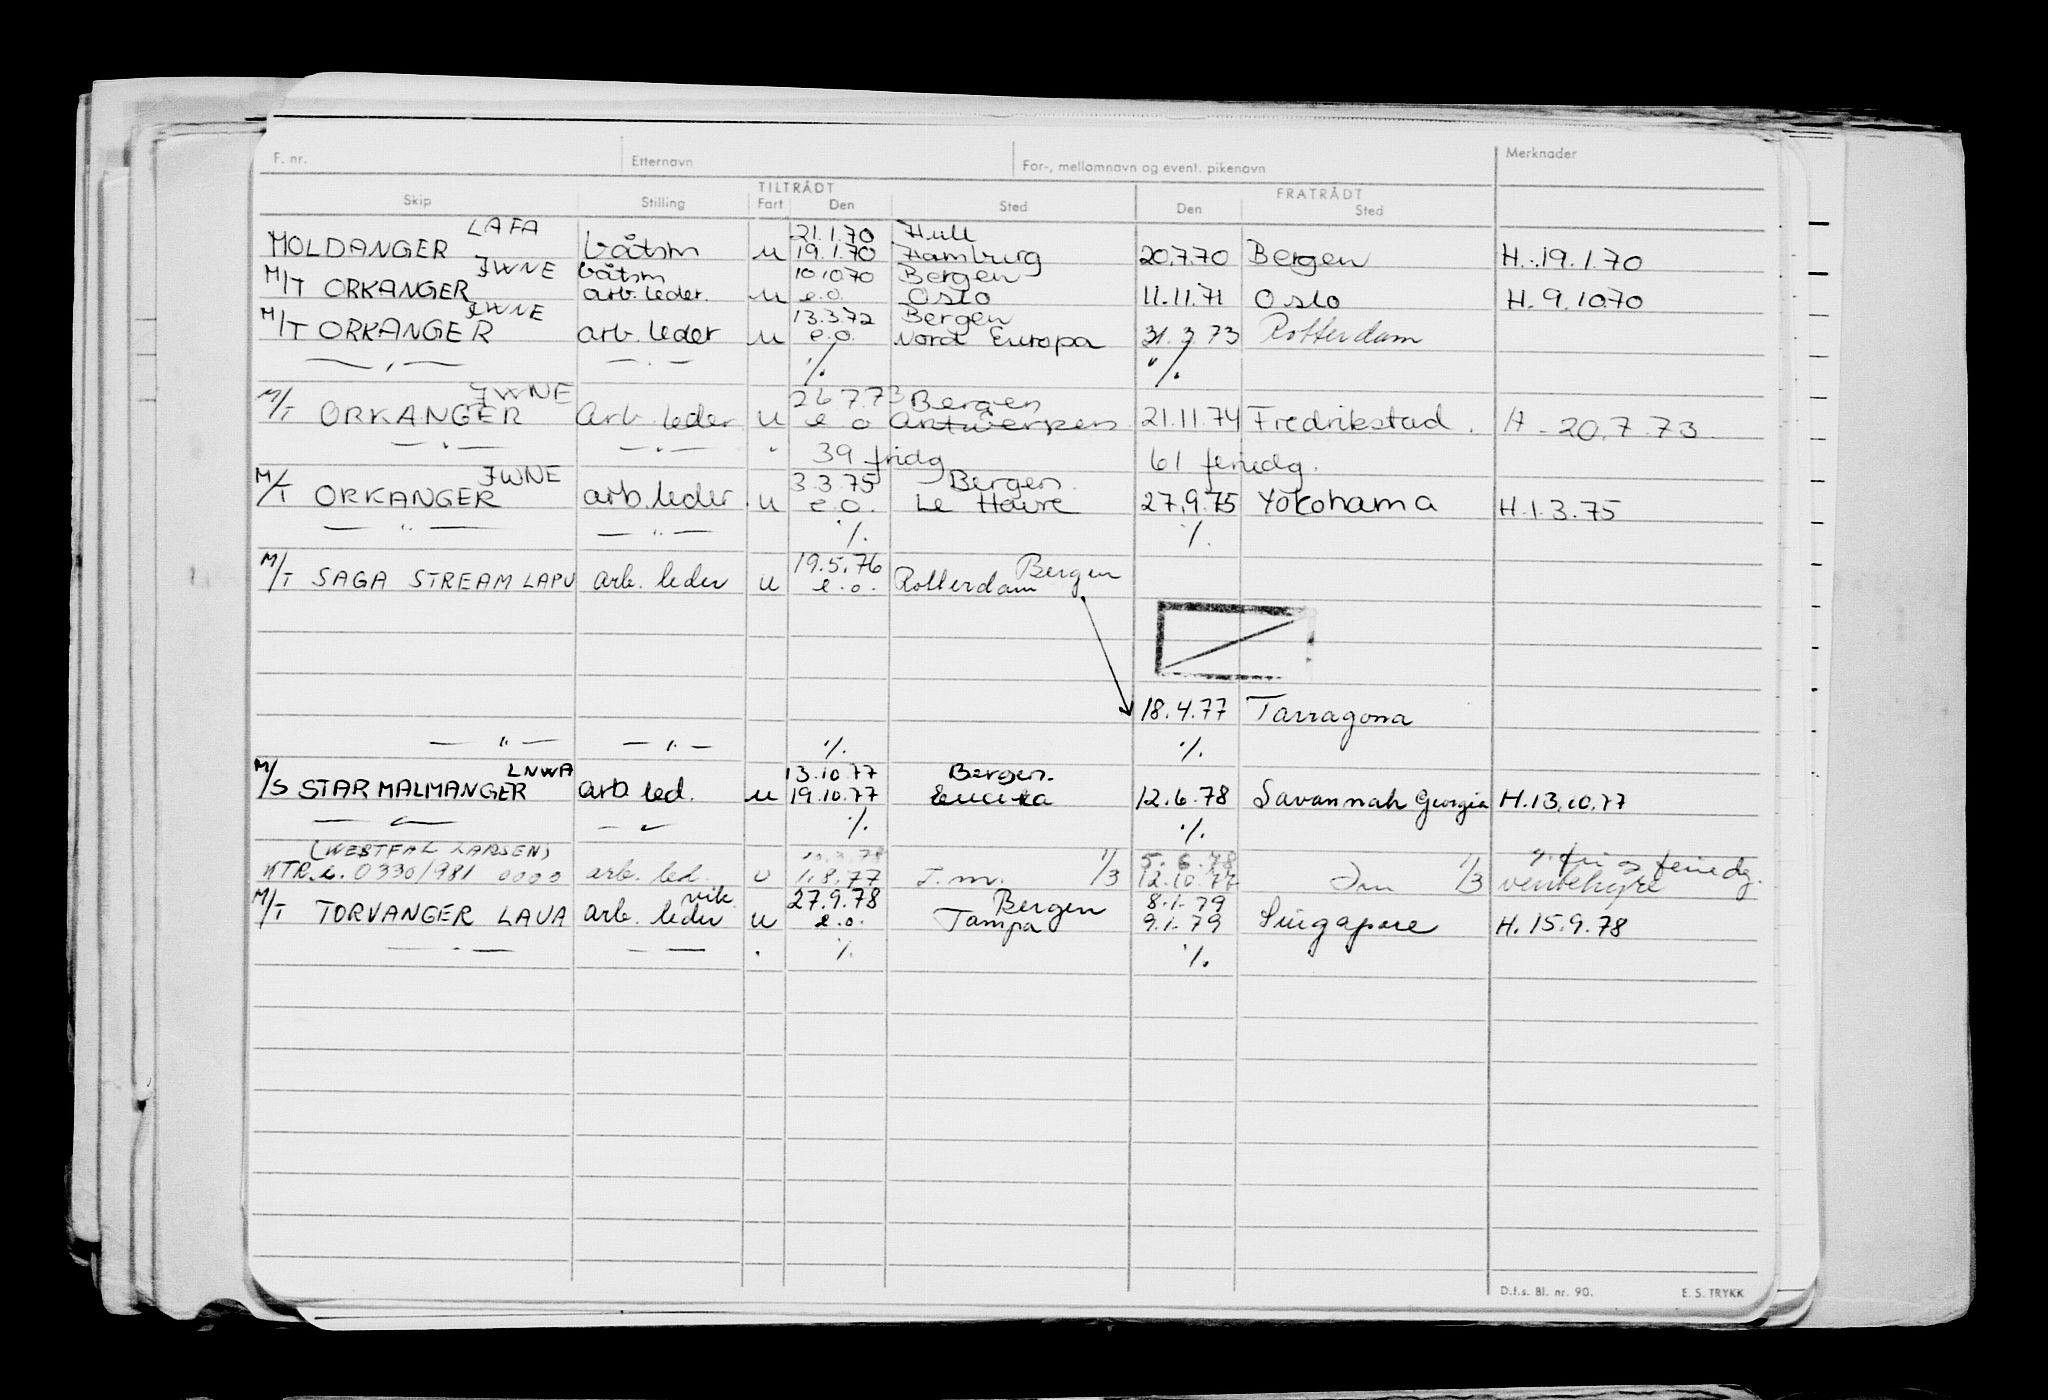 F. nr. Etternavn For-, mellomnavn og event. pikenavn Merknader
TILTRÅDT FRATRÅDT
Skip Stilling Fart Den Sted Den Sted
LAFA 21.1.70 Hull
MOLDANGER båtsm u 19.1.70 Hamburg 20.7.70 Bergen H. 19.1.70
JWNE båtsm 10.10.70 Bergen
M/T ORKANGER arb. leder. u e.o. Oslo 11.11.71 Oslo H. 9.10.70
JWNE 13.3.72 Bergen
M/T ORKANGER arb. leder u e.o. Nord Europa 31.3.73 Rotterdam
— " — — " — ./. ./.
JWNE 26.7.73 Bergen
M/T ORKANGER arb. leder u e o Antwerpen 21.11.74 Fredrikstad. H - 20.7.73
— " — — " — " 39 fridg 61 feriedg.
JWNE 3.3.75 Bergen.
M/T ORKANGER arb. leder. u e.o. Le Havre 27.9.75 Yokohama H.1.3.75
— " — — " — ./. ./.
19.5.76 Bergen
M/T SAGA STREAM LAPU arb. leder u e.o. Rotterdam
18.4.77 Tarragona
— " — — " — ./. ./.
LNWA 13.10.77 Bergen.
M/S STAR MALMANGER arb led. u 19.10.77 12.6.78 Savannah Georgia H.13.10.77
— " — — " — ./. ./.
(WESTFAL LARSEN) 5.6.78 ./. fri og feriedg.
KTR. 0330/981 0000 arb. led. u 1.8.77 I.m. 1/3 12.10.77 1/3 ventehyre
vik. 27.9.78 Bergen 8.1.79
M/T TORVANGER LAVA arb. leder u e.o. Tampa 9.1.79 Singapore H. 15.9.78
— " — — — . ./. ./.
D.f.s. Bl. nr. 90. E. S. TRYKK